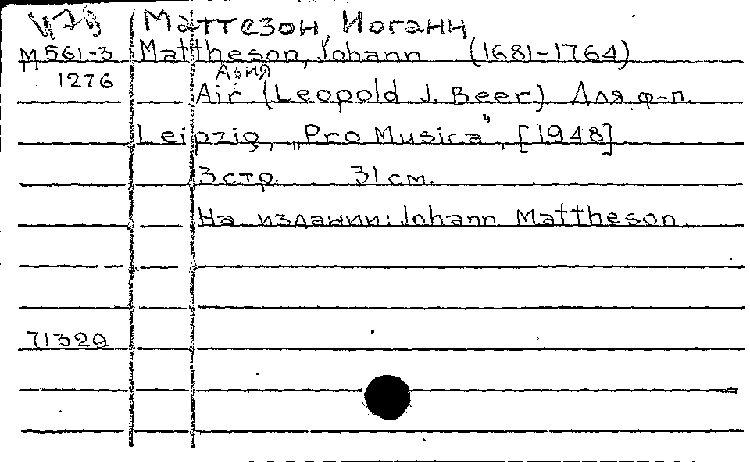 Маттезон, Иоганн
М 561-3 Mattheson, Johann (1681-1764)
1276 Ария
Air (Leopold J. Beer) Для ф-п.
Leipzig, „Pro Musica", [1948]
3 стр. 31 см.
На издании: Johann Mattheson
71320